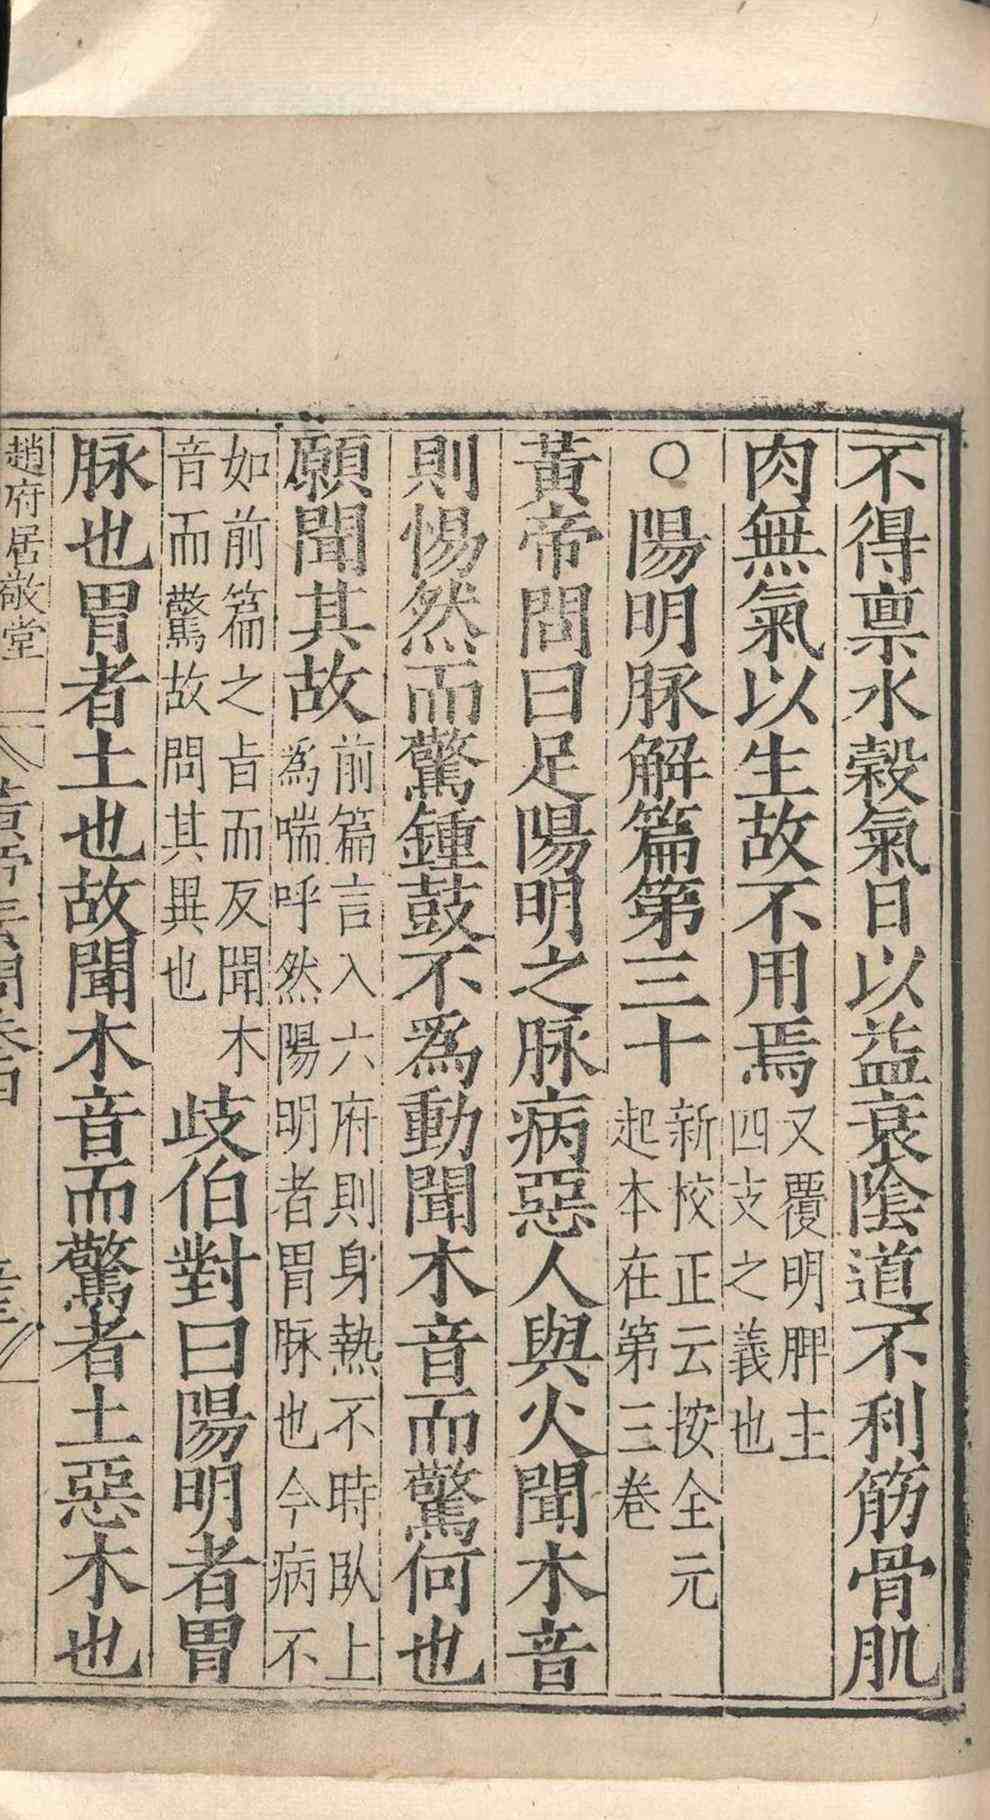 不得禀水穀氣日以益衰陰道不利筋骨肌
肉無氣以生故不用焉又覆明脾主四支之義也
○陽明脉解篇第三十新校正云按全元起本在第三卷
黃帝問曰足陽明之脉病惡人與火聞木音
則惕然而驚鍾鼓不為動聞木音而驚何也
願聞其故前篇言入六府則身熱不時臥上為喘呼然陽明者胃脉也今病不
如前篇之旨而反聞木音而驚故問其異也歧伯對曰陽明者胃
脉也胃者土也故聞木音而驚者土惡木也
趙府居敬堂
黃帝素問卷四